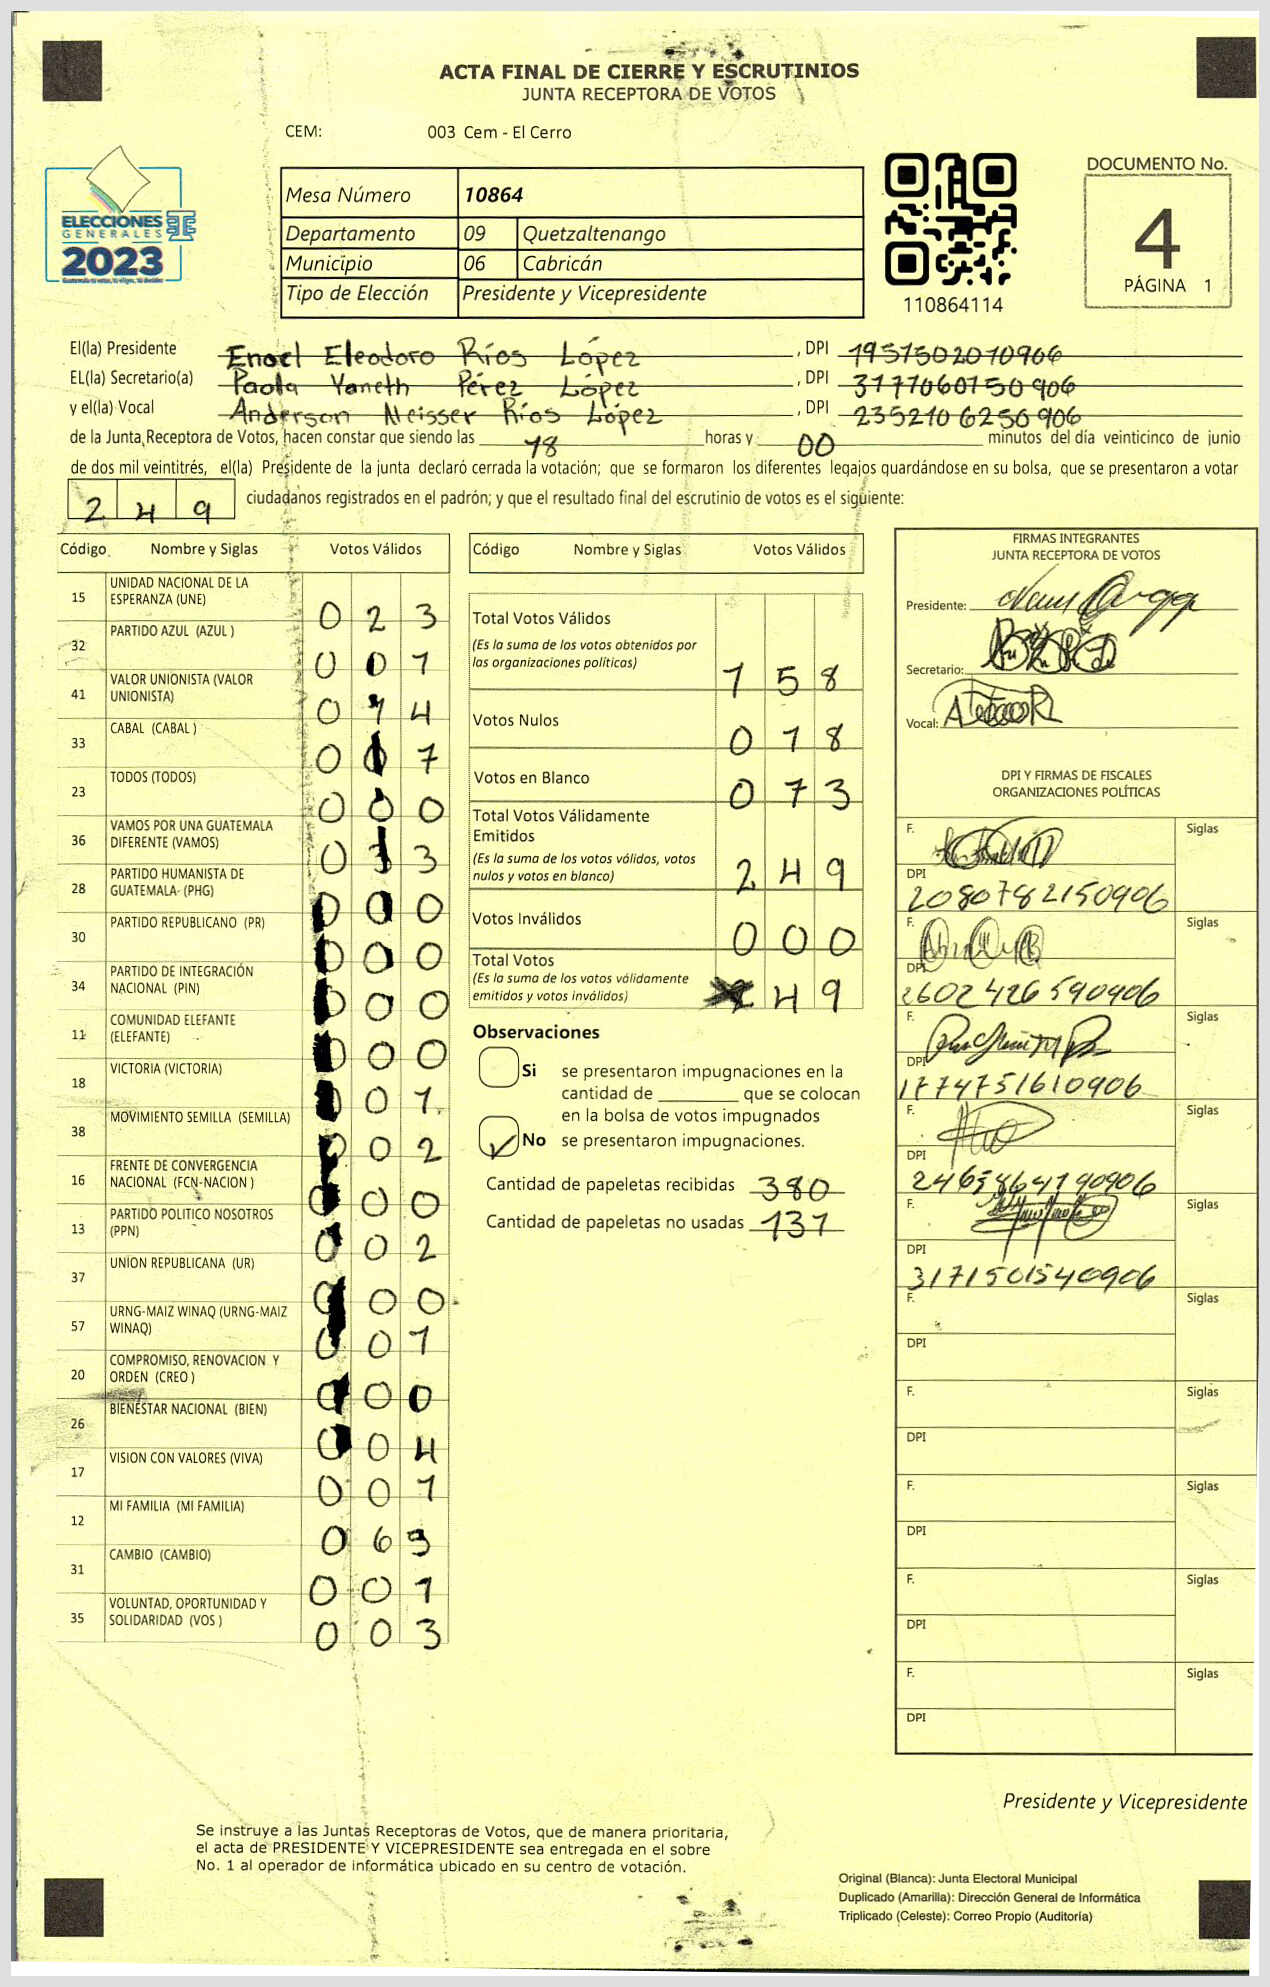 ACTA FINAL DE CIERRE Y ESCRUTINIOS
JUNTA RECEPTORA DE VOTOS
CEM: 003 Cem - El Cerro
ELECCIONES
GENERALES
2023
Mesa Número 10864
Departamento 09 Quetzaltenango
Municipio 06 Cabricán
Tipo de Elección Presidente y Vicepresidente
110864114
DOCUMENTO No.
4
PÁGINA 1
El(la) Presidente Enoel Eleodoro Ríos López, DPI 1951502010906
EL(la) Secretario(a) Paola Yaneth Pérez López, DPI 3177060150906
y el(la) Vocal Anderson Neisser Ríos López, DPI 2352106250906
de la Junta Receptora de Votos, hacen constar que siendo las 18 horas y 00 minutos del día veinticinco de junio
de dos mil veintitrés, el(la) Presidente de la junta declaró cerrada la votación; que se formaron los diferentes legajos guardándose en su bolsa, que se presentaron a votar
249 ciudadanos registrados en el padrón; y que el resultado final del escrutinio de votos es el siguiente:
Código Nombre y Siglas Votos Válidos
15 UNIDAD NACIONAL DE LA ESPERANZA (UNE) 0 2 3
32 PARTIDO AZUL (AZUL ) 0 0 1
41 VALOR UNIONISTA (VALOR UNIONISTA) 0 1 4
33 CABAL (CABAL ) 0 0 7
23 TODOS (TODOS) 0 0 0
36 VAMOS POR UNA GUATEMALA DIFERENTE (VAMOS) 0 3 3
28 PARTIDO HUMANISTA DE GUATEMALA (PHG) 0 0 0
30 PARTIDO REPUBLICANO (PR) 0 0 0
34 PARTIDO DE INTEGRACIÓN NACIONAL (PIN) 0 0 0
11 COMUNIDAD ELEFANTE (ELEFANTE) 0 0 0
18 VICTORIA (VICTORIA) 0 0 1
38 MOVIMIENTO SEMILLA (SEMILLA) 0 0 2
16 FRENTE DE CONVERGENCIA NACIONAL (FCN-NACION ) 0 0 0
13 PARTIDO POLITICO NOSOTROS (PPN) 0 0 2
37 UNION REPUBLICANA (UR) 0 0 0
57 URNG-MAIZ WINAQ (URNG-MAIZ WINAQ) 0 0 1
20 COMPROMISO, RENOVACION Y ORDEN (CREO ) 0 0 0
26 BIENESTAR NACIONAL (BIEN) 0 0 4
17 VISION CON VALORES (VIVA) 0 0 1
12 MI FAMILIA (MI FAMILIA) 0 6 5
31 CAMBIO (CAMBIO) 0 0 1
35 VOLUNTAD, OPORTUNIDAD Y SOLIDARIDAD (VOS ) 0 0 3
Código Nombre y Siglas Votos Válidos
Total Votos Válidos
(Es la suma de los votos obtenidos por
las organizaciones políticas) 1 5 8
Votos Nulos 0 1 8
Votos en Blanco 0 7 3
Total Votos Válidamente
Emitidos
(Es la suma de los votos válidos, votos
nulos y votos en blanco) 2 4 9
Votos Inválidos 0 0 0
Total Votos
(Es la suma de los votos válidamente
emitidos y votos inválidos) 2 4 9
Observaciones
Si se presentaron impugnaciones en la
cantidad de ________ que se colocan
en la bolsa de votos impugnados
No se presentaron impugnaciones.
Cantidad de papeletas recibidas 380
Cantidad de papeletas no usadas 131
FIRMAS INTEGRANTES
JUNTA RECEPTORA DE VOTOS
Presidente:
Secretario:
Vocal:
DPI Y FIRMAS DE FISCALES
ORGANIZACIONES POLÍTICAS
F. Siglas
DPI
2080782150906
F. Siglas
DPI
2602426590906
F. Siglas
DPI
1774751610906
F. Siglas
DPI
F. Siglas
DPI
3171501540906
F. Siglas
DPI
F. Siglas
DPI
F. Siglas
DPI
F. Siglas
DPI
F. Siglas
DPI
Presidente y Vicepresidente
Se instruye a las Juntas Receptoras de Votos, que de manera prioritaria,
el acta de PRESIDENTE Y VICEPRESIDENTE sea entregada en el sobre
No. 1 al operador de informática ubicado en su centro de votación.
Original (Blanca): Junta Electoral Municipal
Duplicado (Amarilla): Dirección General de Informática
Triplicado (Celeste): Correo Propio (Auditoría)